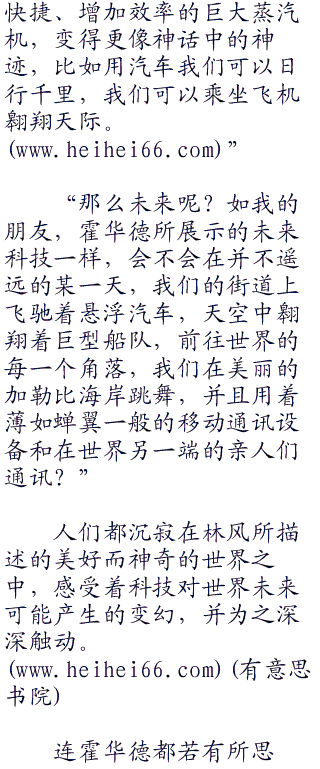 快捷、增加效率的巨大蒸汽
机，变得更像神话中的神
迹，比如用汽车我们可以日
行千里，我们可以乘坐飞机
翱翔天际。
(www.heihei66.com)”
“那么未来呢？如我的
朋友，霍华德所展示的未来
科技一样，会不会在并不遥
远的某一天，我们的街道上
飞驰着悬浮汽车，天空中翱
翔着巨型船队，前往世界的
每一个角落，我们在美丽的
加勒比海岸跳舞，并且用着
薄如蝉翼一般的移动通讯设
备和在世界另一端的亲人们
通讯？”
人们都沉寂在林风所描
述的美好而神奇的世界之
中，感受着科技对世界未来
可能产生的变幻，并为之深
深触动。
(www.heihei66.com)(有意思
书院)
连霍华德都若有所思